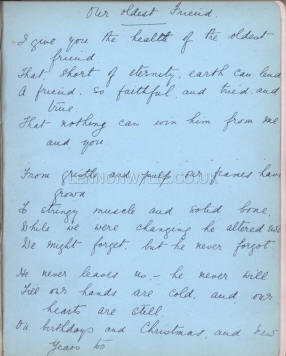 Our oldest Friend.
I give you the health of the oldest
friend
That, short of eternity, earth can lend
A friend, so faithful and tried and
true
That nothing can win him from me
and you
From gristle and pulp our frames have
grown
To stringy muscle and solid bone,
While we were changing he altered not
We might forget, but he never forgot.
He never leaves us – he never will
Till our hands are cold, and our
hearts are still.
On birthdays and Christmas, and New
Years too